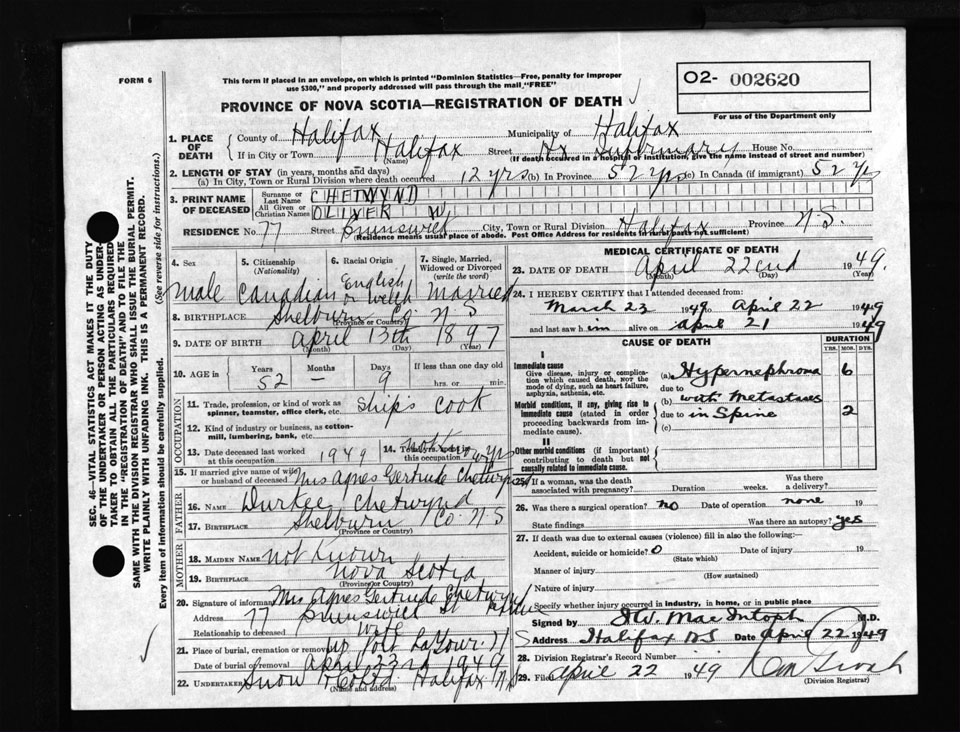 FORM 6
This form if placed in an envelope, on which is printed "Dominion Statistics—Free, penalty for improper
use $300," and properly addressed will pass through the mail "FREE"
O2- 002620
For use of the Department only
PROVINCE OF NOVA SCOTIA—REGISTRATION OF DEATH
1. PLACE OF DEATH County of Halifax Municipality of Halifax
If in City or Town Halifax (Name) Street Hx House No.
(If death occurred in a hospital or institution, give the name instead of street and number)
2. LENGTH OF STAY (in years, months and days)
(a) In City, Town or Rural Division where death occurred 12 yrs (b) In Province 52 yrs (c) In Canada (if immigrant) 52 yrs
3. PRINT NAME OF DECEASED Surname or Last Name CHETWYND
All Given or Christian Names OLIVER W.
RESIDENCE No. 77 Street Brunswick City, Town or Rural Division Halifax Province N.S.
(Residence means usual place of abode. Post Office Address for residents in rural parts not sufficient)
4. Sex 5. Citizenship (Nationality) 6. Racial Origin 7. Single, Married, Widowed or Divorced (write the word)
Male Canadian English or Welsh Married
8. BIRTHPLACE Shelburn Co N S
(Province or Country)
9. DATE OF BIRTH April 13th 1897
(Month) (Day) (Year)
10. AGE in Years Months Days If less than one day old
52 — 9 hrs. or min.
OCCUPATION
11. Trade, profession, or kind of work as spinner, teamster, office clerk, etc. Ship's cook
12. Kind of industry or business, as cotton-mill, lumbering, bank, etc.
13. Date deceased last worked at this occupation 1949 14. Total years spent in this occupation yrs
15. If married give name of wife or husband of deceased Mrs Agnes Gertrude Chetwynd
FATHER
16. NAME Durkee Chetwynd
17. BIRTHPLACE Shelburn Co N S
(Province or Country)
MOTHER
18. MAIDEN NAME Not Known
19. BIRTHPLACE Nova Scotia
(Province or Country)
20. Signature of informant Mrs Agnes Gertrude Chetwynd
Address 77 Brunswick St
Relationship to deceased Wife
21. Place of burial, cremation or removal Up. Port LaTour. N
Date of burial or removal April 23rd 1949
22. Undertaker Snow & Co Ltd. Halifax N.S
(Name and address)
MEDICAL CERTIFICATE OF DEATH
23. DATE OF DEATH April 22nd 1949.
(Month) (Day) (Year)
24. I HEREBY CERTIFY that I attended deceased from:
March 23 1949 to April 22 1949
and last saw him alive on April 21 1949
CAUSE OF DEATH
DURATION
YRS. MOS. DYS.
I
Immediate cause
Give disease, injury or complication which caused death, not the mode of dying, such as heart failure, asphyxia, asthenia, etc.
(a) Hypernephroma 6
due to
Morbid conditions, if any, giving rise to immediate cause (stated in order proceeding backwards from immediate cause).
(b) with Metastases
due to in Spine 2
(c)
II
Other morbid conditions (if important) contributing to death but not causally related to immediate cause.
25. If a woman, was the death associated with pregnancy? Duration weeks. Was there a delivery?
26. Was there a surgical operation? no Date of operation none 19
State findings Was there an autopsy? yes
27. If death was due to external causes (violence) fill in also the following:—
Accident, suicide or homicide? O Date of injury 19
(State which)
Manner of injury
(How sustained)
Nature of injury
Specify whether injury occurred in industry, in home, or in public place
Signed by MacIntosh M.D.
Address Halifax NS Date April 22 1949
28. Division Registrar's Record Number
29. Filed April 22 1949
(Division Registrar)
SEC. 46—VITAL STATISTICS ACT MAKES IT THE DUTY
OF THE UNDERTAKER OR PERSON ACTING AS UNDER-
TAKER TO OBTAIN ALL THE PARTICULARS REQUIRED
IN THE "REGISTRATION OF DEATH" AND TO FILE THE
SAME WITH THE DIVISION REGISTRAR WHO SHALL ISSUE THE BURIAL PERMIT.
WRITE PLAINLY WITH UNFADING INK. THIS IS A PERMANENT RECORD.
Every item of information should be carefully supplied. (See reverse side for instructions.)